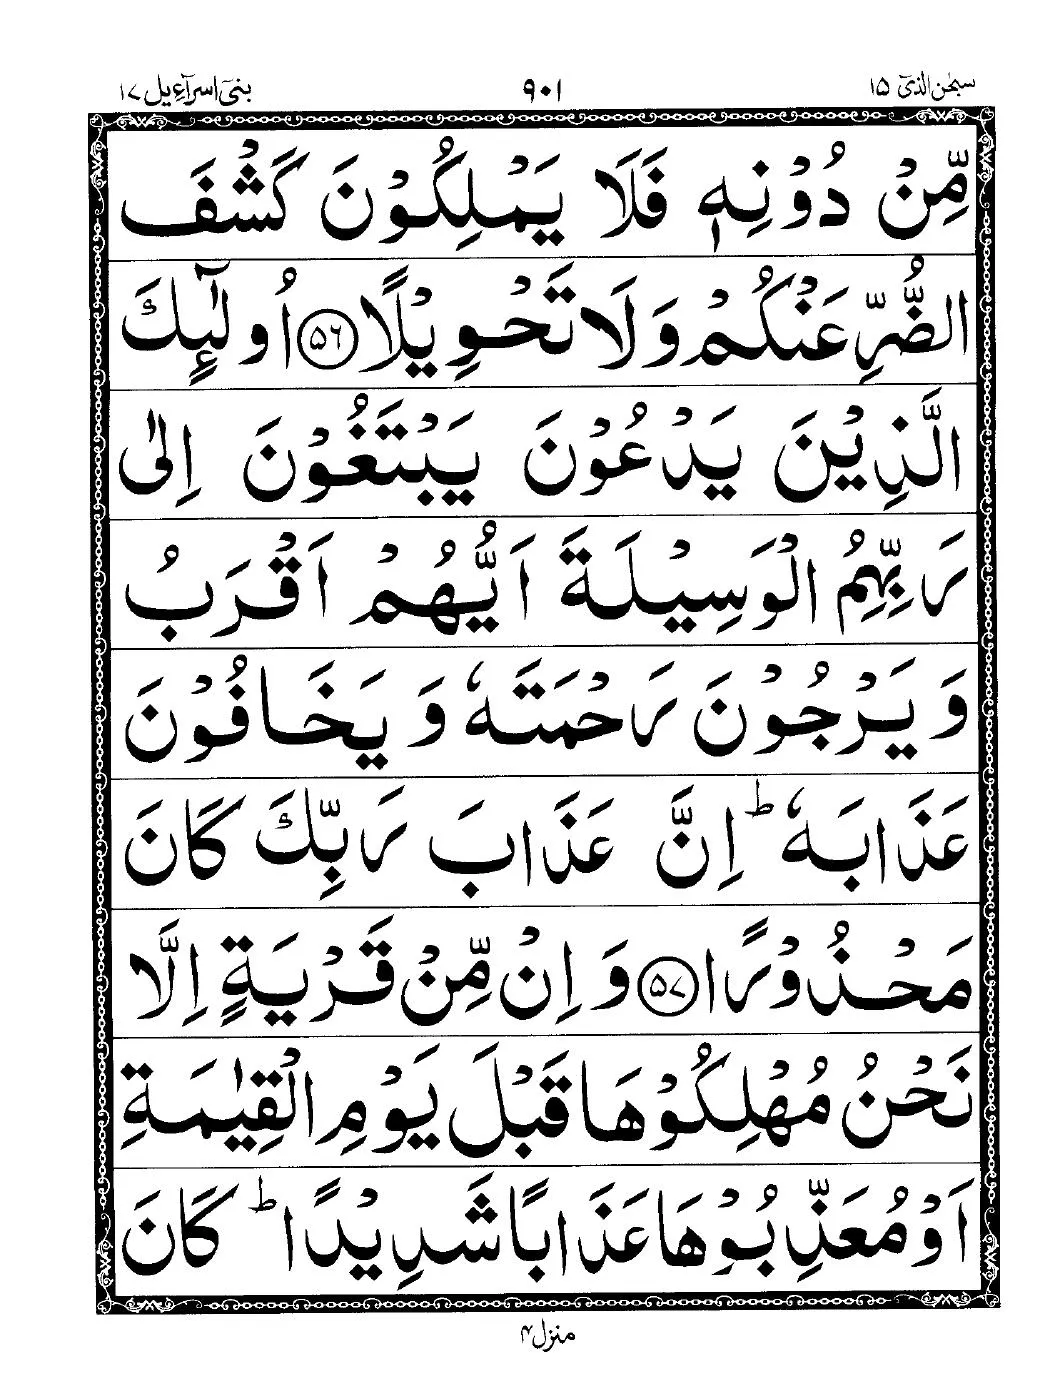 سبحٰن الذیٓ ۱۵
۹۰۱
بنیٓ اسرآءیل ۱۷
مِّنْ دُوْنِهٖ فَلَا يَمْلِكُوْنَ كَشْفَ
الضُّرِّ عَنْكُمْ وَلَا تَحْوِيْلًا ۵۶ اُولٰٓئِكَ
الَّذِيْنَ يَدْعُوْنَ يَبْتَغُوْنَ اِلٰى
رَبِّهِمُ الْوَسِيْلَةَ اَيُّهُمْ اَقْرَبُ
وَيَرْجُوْنَ رَحْمَتَهٗ وَيَخَافُوْنَ
عَذَابَهٗ ؕ اِنَّ عَذَابَ رَبِّكَ كَانَ
مَحْذُوْرًا ۵۷ وَاِنْ مِّنْ قَرْيَةٍ اِلَّا
نَحْنُ مُهْلِكُوْهَا قَبْلَ يَوْمِ الْقِيٰمَةِ
اَوْ مُعَذِّبُوْهَا عَذَابًا شَدِيْدًا ؕ كَانَ
منزل ۴